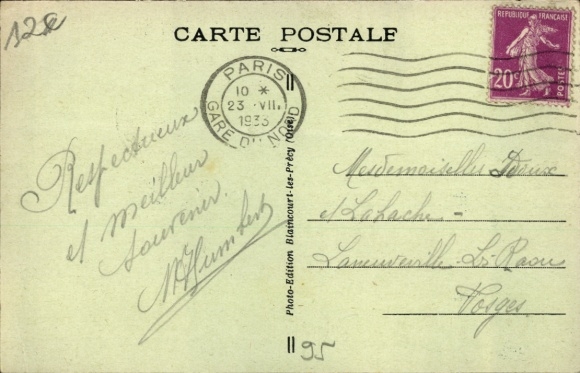 12€
CARTE POSTALE
REPUBLIQUE FRANÇAISE
20c
POSTES
PARIS
10 *
23 · VII.
1933
GARE DU NORD
Respectueux
et meilleur
souvenir.
Humbert
Photo-Edition Blaincourt-les-Précy (Oise)
Mesdemoiselles
et
Laneuveville-Ls-Raon
Vosges
95